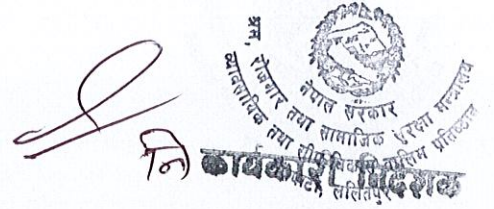 नेपाल सरकार
श्रम, रोजगार तथा सामाजिक सुरक्षा मन्त्रालय
व्यावसायिक तथा सीपविकास तालिम प्रतिष्ठान
ललितपुर
नि कार्यकारी निर्देशक